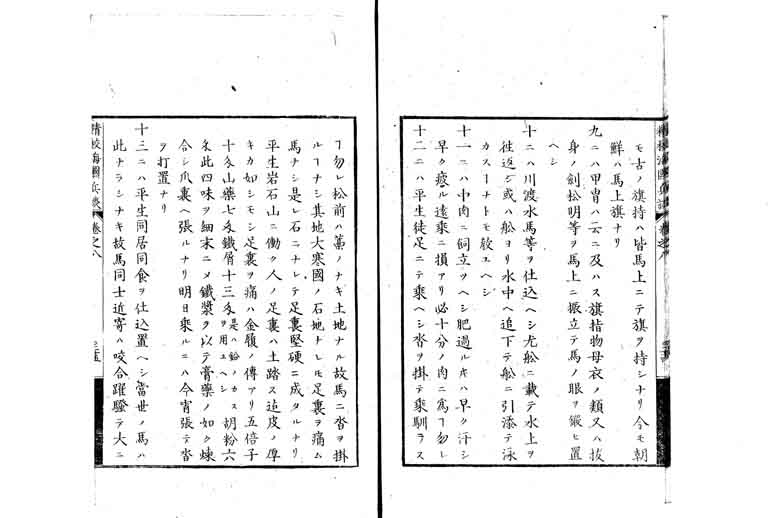 モ古ノ旗持ハ皆馬上ニテ旗ヲ持シナリ今モ朝
鮮ハ馬上旗ナリ
九ニハ甲冑ハ云ニ及ハス旗指物母衣ノ類又ハ抜
身ノ劍松明等ヲ馬上ニ振立テ馬ノ眼ヲ ヒ置
ヘシ
十ニハ川渡水馬等ヲ仕込ヘシ先舩ニ載テ水上ヲ
徃返シ或ハ舩ヨリ水中ヘ追下テ舩ニ引添テ泳
カスーナトモ教ユヘシ
十一ニハ中肉ニ飼立ヲヘシ肥過ルキハ早ク汗シ
早ク 遠乘ニ損アリ必十分ノ肉ニ爲ヿ勿レ
十二ニハ平生徒足ニテ乘ヘシ沓ヲ掛テ乘馴ラス
ヿ勿レ松前ハ藁ノナキ土地ナル故馬ニ沓ヲ掛
ルヿナシ其地大寒國ノ石地ナレモ足裏ヲ痛ム
馬ナシ是レ石ニナレテ足裏堅硬ニ成タルナリ
平生岩石山ニ働ク人ノ足裏ハ土踏ス迠皮ノ厚
キカ如シモシ足裏ヲ痛ハ金履ノ傳アリ五倍子
十匁山藥七匁鐵屑十三匁是ハ鉛ノカスヲ用ユヘシ胡粉六
匁此四味ヲ細末ニメ鐵漿ヲ以テ膏藥ノ如ク煉
合シ爪裏ヘ張ルナリ明日乘ルニハ今宵張テ沓
ヲ打置ナリ
十三ニハ平生同居同食ヲ仕込置ヘシ當世ノ馬ハ
此ナラシナキ故馬同士近寄ハ咬合躍騷テ大ニ
精校海國兵談 卷之八
精校海國兵談 卷之八